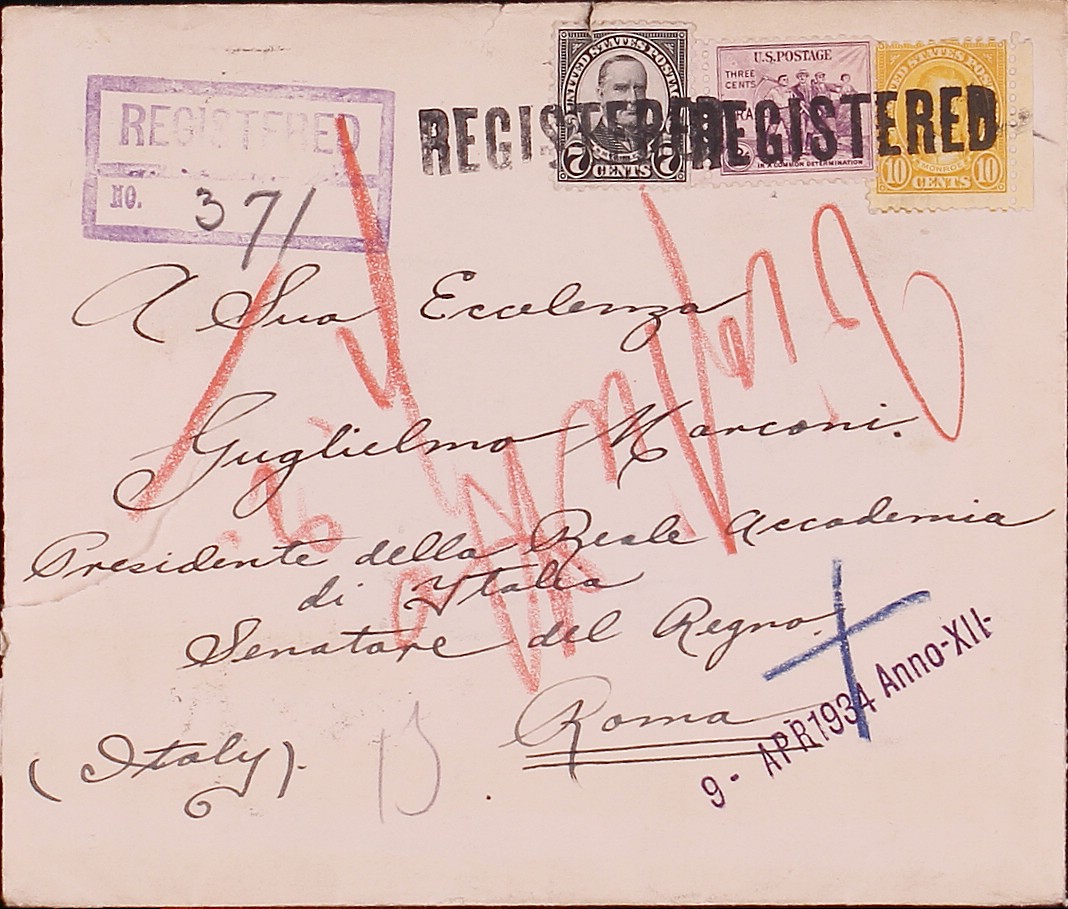 UNITED STATES POSTAGE
7 CENTS 7
U.S. POSTAGE
THREE
CENTS
IN A COMMON DETERMINATION
MONROE
10 CENTS 10
REGISTERED REGISTERED
REGISTERED
NO. 371
A Sua Eccelenza
Guglielmo Marconi.
Presidente della Reale Accademia
di Italia
Senatore del Regno.
Roma
(Italy).
9 - APR 1934 Anno-XII-